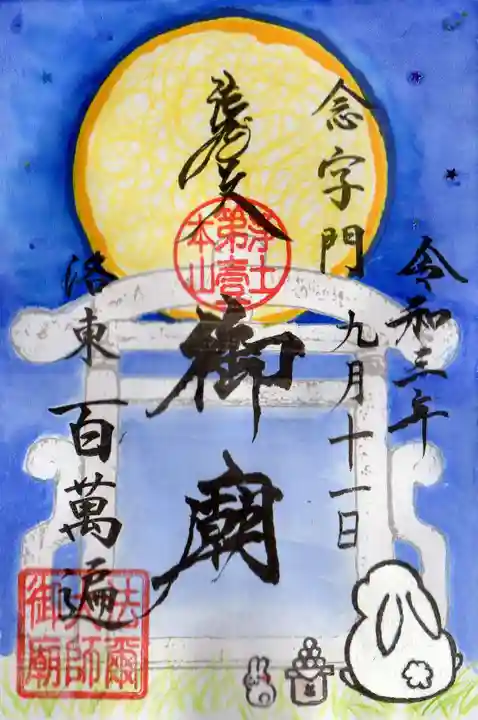 令和三年
九月十一日
念字門
御廟
洛東 百萬遍
浄土
第壹
本山
法爾
大師
御廟